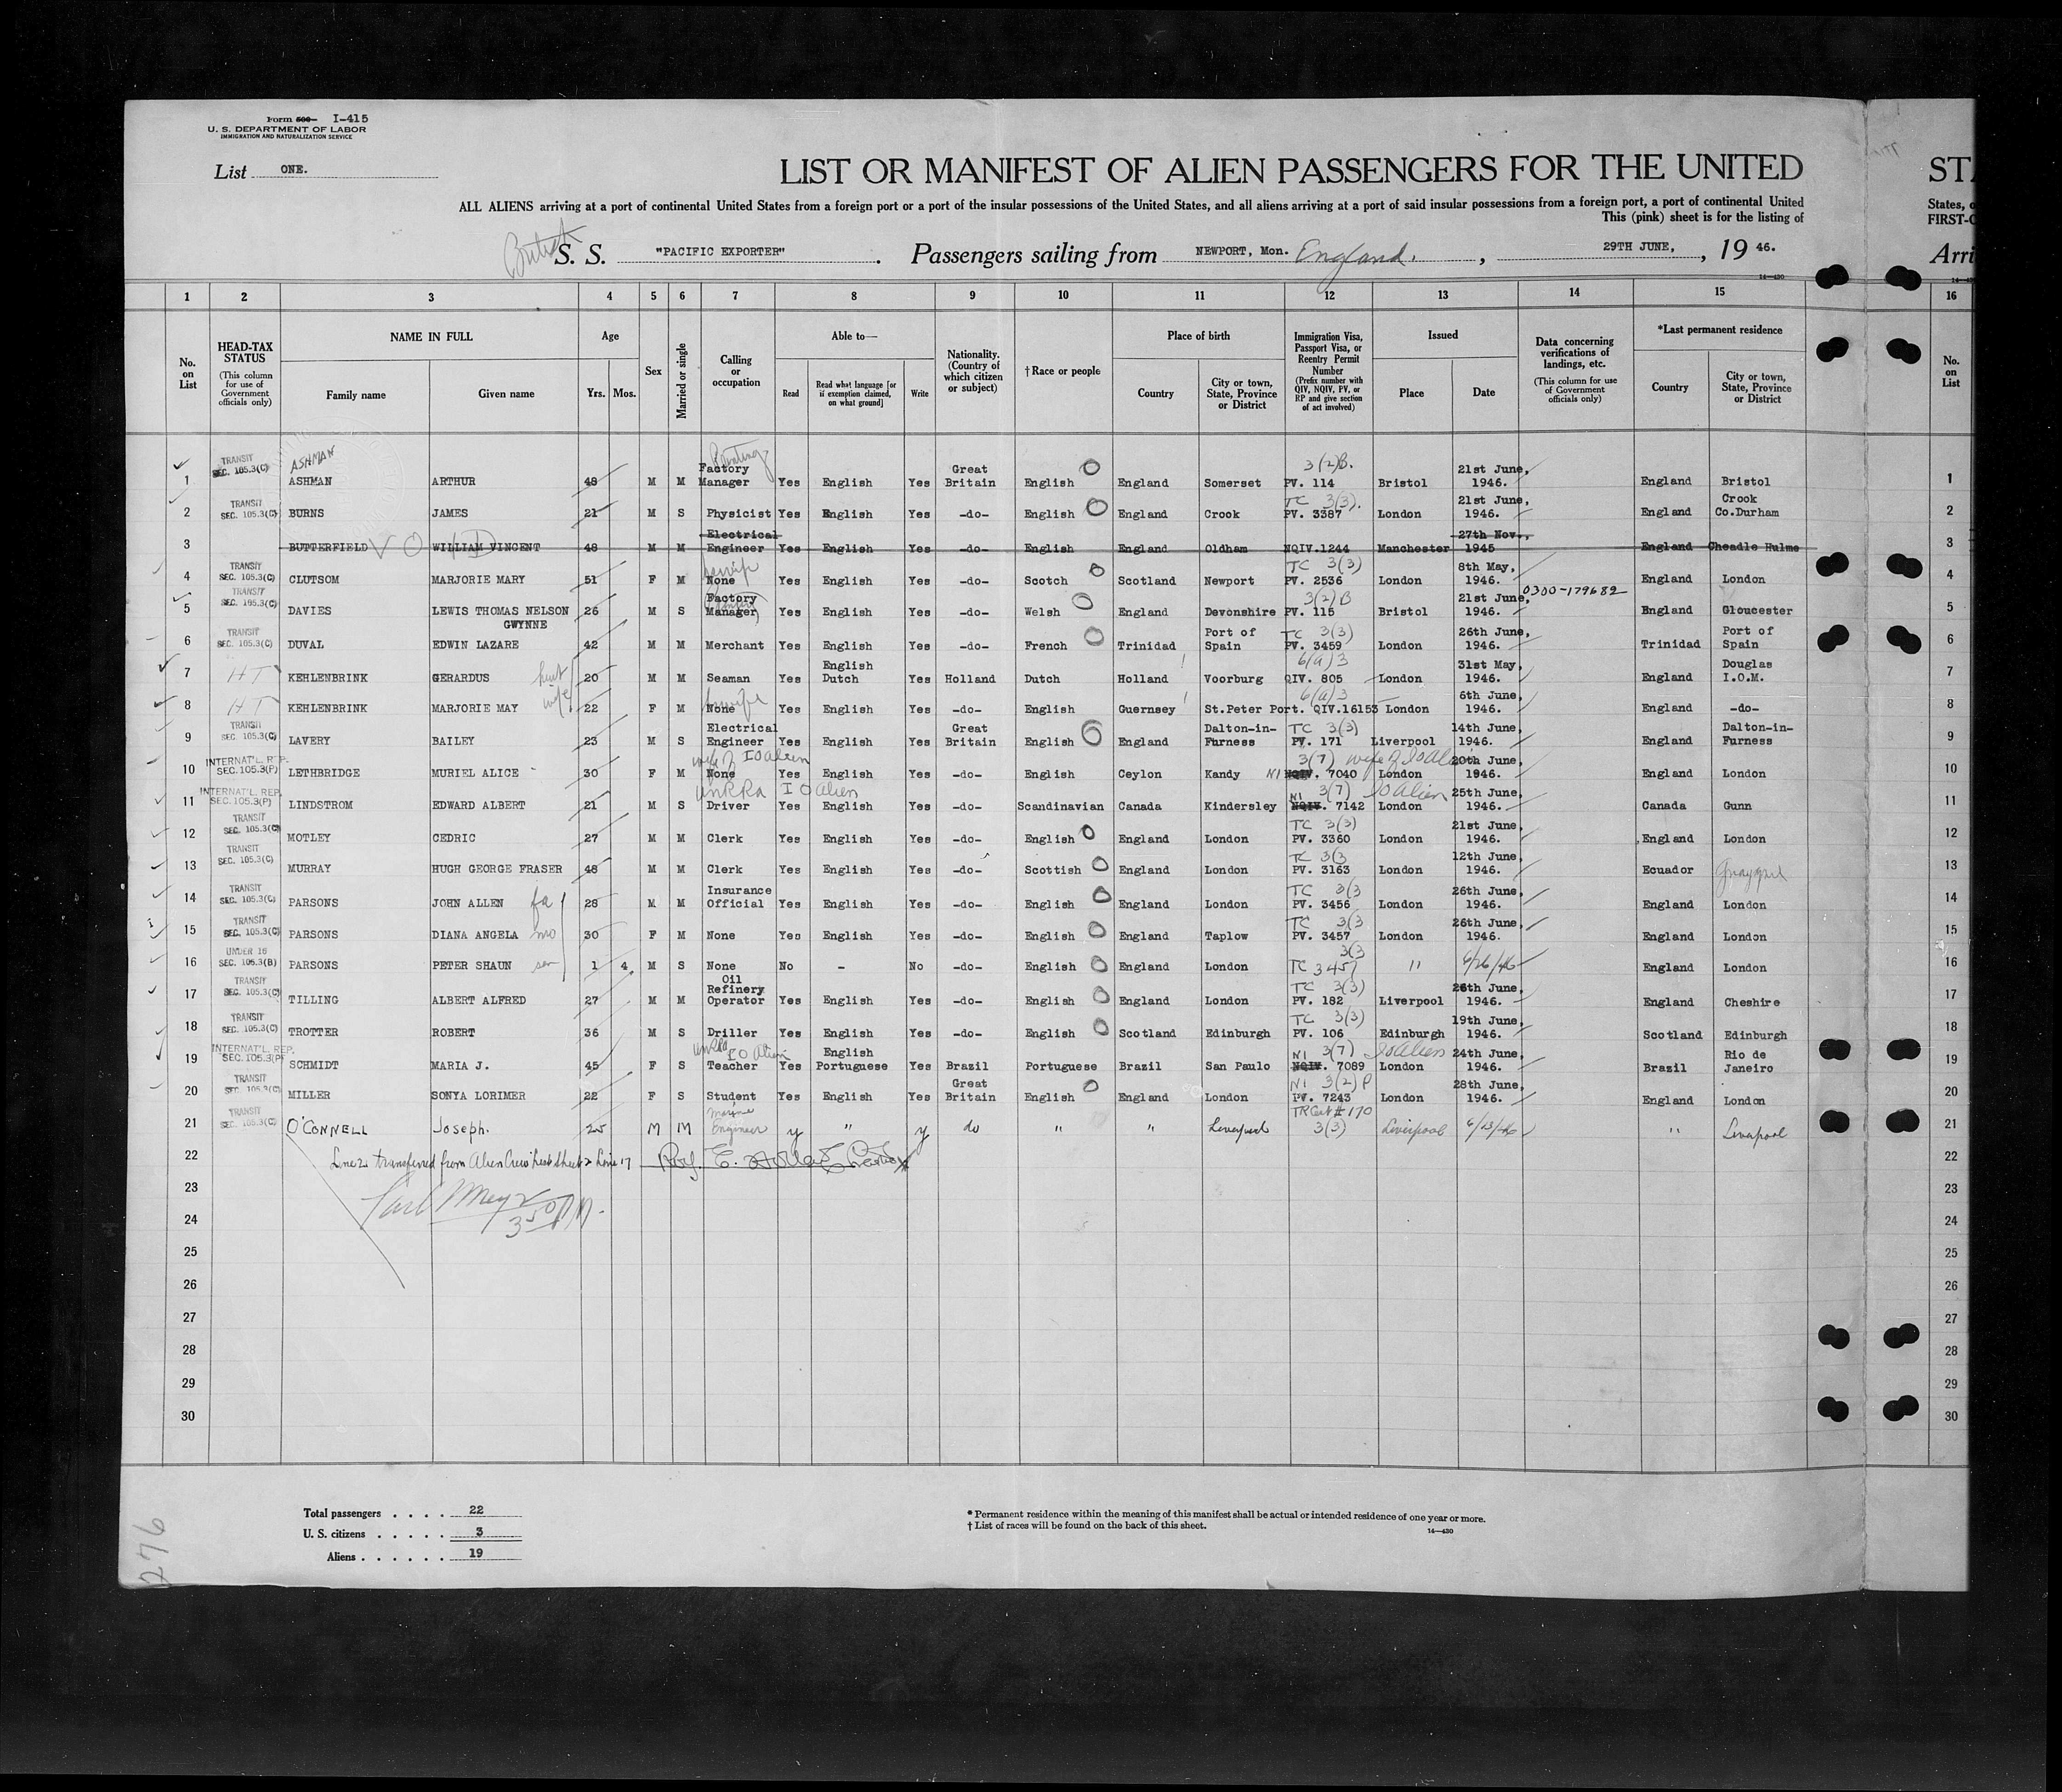 Form 500 I-415
U. S. DEPARTMENT OF LABOR
IMMIGRATION AND NATURALIZATION SERVICE
List ONE.
LIST OR MANIFEST OF ALIEN PASSENGERS FOR THE UNITED
STA
ALL ALIENS arriving at a port of continental United States from a foreign port or a port of the insular possessions of the United States, and all aliens arriving at a port of said insular possessions from a foreign port, a port of continental United
States, o
This (pink) sheet is for the listing of
FIRST-C
British S. S. "PACIFIC EXPORTER". Passengers sailing from NEWPORT, Mon. England, 29TH JUNE, 19 46.
Arri
14—430
1 2 3 4 5 6 7 8 9 10 11 12 13 14 15 16
No. on List
HEAD-TAX STATUS (This column for use of Government officials only)
NAME IN FULL
Family name Given name
Age Yrs. Mos.
Sex
Married or single
Calling or occupation
Able to—
Read Read what language [or if exemption claimed, on what ground] Write
Nationality. (Country of which citizen or subject)
† Race or people
Place of birth
Country City or town, State, Province or District
Immigration Visa, Passport Visa, or Reentry Permit Number (Prefix number with QIV, NQIV, PV, or RP and give section of act involved)
Issued
Place Date
Data concerning verifications of landings, etc. (This column for use of Government officials only)
*Last permanent residence
Country City or town, State, Province or District
No. on List
1 TRANSIT SEC. 105.3(C) ASHMAN ASHMAN ARTHUR 48 M M Printing Factory Manager Yes English Yes Great Britain English England Somerset 3(2)B. PV. 114 Bristol 21st June, 1946. England Bristol 1
2 TRANSIT SEC. 105.3(C) BURNS JAMES 21 M S Physicist Yes English Yes -do- English England Crook TC 3(3). PV. 3387 London 21st June, 1946. England Crook Co.Durham 2
3 BUTTERFIELD WILLIAM VINCENT 48 M M Electrical Engineer Yes English Yes -do- English England Oldham NQIV.1244 Manchester 27th Nov., 1945 England Cheadle Hulme 3
4 TRANSIT SEC. 105.3(C) CLUTSOM MARJORIE MARY 51 F M None Yes English Yes -do- Scotch Scotland Newport TC 3(3) PV. 2536 London 8th May, 1946. England London 4
5 TRANSIT SEC. 105.3(C) DAVIES LEWIS THOMAS NELSON GWYNNE 26 M S Factory Manager Yes English Yes -do- Welsh England Devonshire 3(2)B PV. 115 Bristol 21st June, 1946. 0300-179682 England Gloucester 5
6 TRANSIT SEC. 105.3(C) DUVAL EDWIN LAZARE 42 M M Merchant Yes English Yes -do- French Trinidad Port of Spain TC 3(3) PV. 3459 London 26th June, 1946. Trinidad Port of Spain 6
7 HT KEHLENBRINK GERARDUS 20 M M Seaman Yes English Dutch Yes Holland Dutch Holland Voorburg 6(a)3 QIV. 805 London 31st May, 1946. England Douglas I.O.M. 7
8 HT KEHLENBRINK MARJORIE MAY wife 22 F M None Yes English Yes -do- English Guernsey St.Peter Port. 6(a)3 QIV.16153 London 6th June, 1946. England -do- 8
9 TRANSIT SEC. 105.3(C) LAVERY BAILEY 23 M S Electrical Engineer Yes English Yes Great Britain English England Dalton-in-Furness TC 3(3) PV. 171 Liverpool 14th June, 1946. England Dalton-in-Furness 9
10 INTERNAT'L. REP. SEC. 105.3(P) LETHBRIDGE MURIEL ALICE 30 F M wife of IO Alien None Yes English Yes -do- English Ceylon Kandy 3(7) wife of IO Alien NI NQIV. 7040 London 20th June, 1946. England London 10
11 INTERNAT'L. REP. SEC. 105.3(P) LINDSTROM EDWARD ALBERT 21 M S UNRRA IO Alien Driver Yes English Yes -do- Scandinavian Canada Kindersley NI 3(7) IO Alien NQIV. 7142 London 25th June, 1946. Canada Gunn 11
12 TRANSIT SEC. 105.3(C) MOTLEY CEDRIC 27 M M Clerk Yes English Yes -do- English England London TC 3(3) PV. 3360 London 21st June, 1946. England London 12
13 TRANSIT SEC. 105.3(C) MURRAY HUGH GEORGE FRASER 48 M M Clerk Yes English Yes -do- Scottish England London TC 3(3 PV. 3163 London 12th June, 1946. Ecuador 13
14 TRANSIT SEC. 105.3(C) PARSONS JOHN ALLEN fa 28 M M Insurance Official Yes English Yes -do- English England London TC 3(3 PV. 3456 London 26th June, 1946. England London 14
15 TRANSIT SEC. 105.3(C) PARSONS DIANA ANGELA mo 30 F M None Yes English Yes -do- English England Taplow TC 3(3 PV. 3457 London 26th June, 1946. England London 15
16 UNDER 16 SEC. 105.3(B) PARSONS PETER SHAUN son 1 4 M S None No - No -do- English England London 3(3 TC 3457 " 6/26/46 England London 16
17 TRANSIT SEC. 105.3(C) TILLING ALBERT ALFRED 27 M M Oil Refinery Operator Yes English Yes -do- English England London TC 3(3) PV. 182 Liverpool 26th June, 1946. England Cheshire 17
18 TRANSIT SEC. 105.3(C) TROTTER ROBERT 36 M S Driller Yes English Yes -do- English Scotland Edinburgh TC 3(3) PV. 106 Edinburgh 19th June, 1946. Scotland Edinburgh 18
19 INTERNAT'L. REP. SEC. 105.3(P) SCHMIDT MARIA J. 45 F S UNRRA IO Alien Teacher Yes English Portuguese Yes Brazil Portuguese Brazil San Paulo NI 3(7) IO Alien NQIV. 7089 London 24th June, 1946. Brazil Rio de Janeiro 19
20 TRANSIT SEC. 105.3(C) MILLER SONYA LORIMER 22 F S Student Yes English Yes Great Britain English England London NI 3(2)P PV. 7243 London 28th June, 1946. England London 20
21 TRANSIT SEC. 105.3(C) O'CONNELL Joseph. 25 M M Marine Engineer y " y do " " Liverpool TR Cert # 170 3(3) Liverpool 6/13/46 " Liverpool 21
22 Line 21 transferred from Alien Crew List Sheet 2 Line 17 22
23 23
24 350 PM. 24
25 25
26 26
27 27
28 28
29 29
30 30
Total passengers . . . . 22
U. S. citizens . . . . . 3
Aliens . . . . . . 19
* Permanent residence within the meaning of this manifest shall be actual or intended residence of one year or more.
† List of races will be found on the back of this sheet.
14—430
276